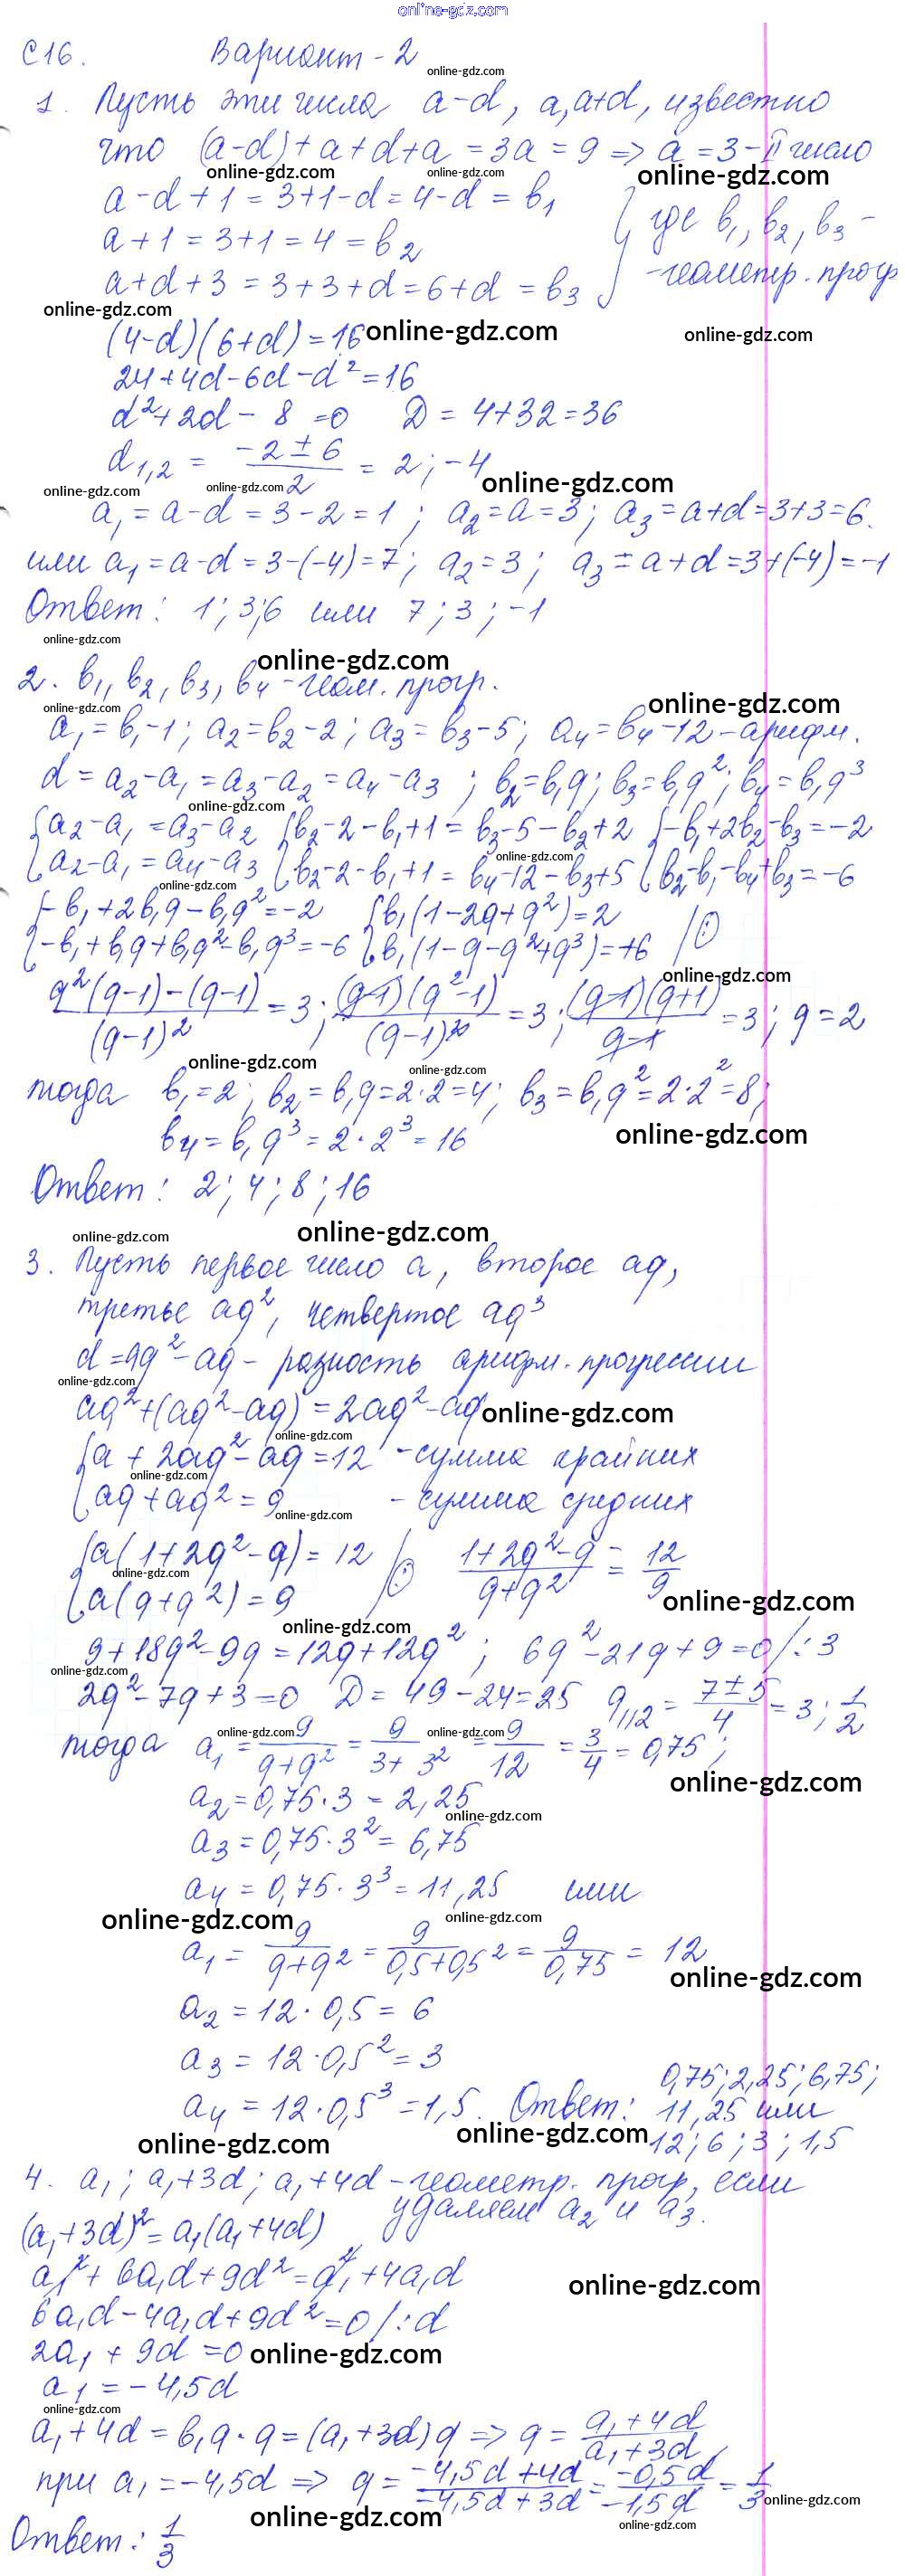 online-gdz.com
С16. Вариант-2
online-gdz.com
1. Пусть эти числа a-d, a, a+d, известно
что (a-d)+a+d+a=3a=9 => a=3-II число
online-gdz.com online-gdz.com online-gdz.com
a-d+1=3+1-d=4-d=b₁
a+1=3+1=4=b₂ } где b₁, b₂, b₃-
a+d+3=3+3+d=6+d=b₃ -геометр. прогр
online-gdz.com
(4-d)(6+d)=16 online-gdz.com online-gdz.com
24+4d-6d-d²=16
d²+2d-8=0 D=4+32=36
d₁,₂ = (-2±6)/2 = 2; -4
online-gdz.com online-gdz.com online-gdz.com
a₁=a-d=3-2=1; a₂=a=3; a₃=a+d=3+3=6.
или a₁=a-d=3-(-4)=7; a₂=3; a₃=a+d=3+(-4)=-1
Ответ: 1; 3; 6 или 7; 3; -1
online-gdz.com
2. b₁, b₂, b₃, b₄-геом. прогр. online-gdz.com
online-gdz.com online-gdz.com
a₁=b₁-1; a₂=b₂-2; a₃=b₃-5; a₄=b₄-12-арифм.
d=a₂-a₁=a₃-a₂=a₄-a₃; b₂=b₁q; b₃=b₁q²; b₄=b₁q³
online-gdz.com
{a₂-a₁=a₃-a₂ {b₂-2-b₁+1=b₃-5-b₂+2 {-b₁+2b₂-b₃=-2
online-gdz.com
{a₂-a₁=a₄-a₃ {b₂-2-b₁+1=b₄-12-b₃+5 {b₂-b₁-b₄+b₃=-6
online-gdz.com
{-b₁+2b₁q-b₁q²=-2 {b₁(1-2q+q²)=2
{-b₁+b₁q+b₁q²-b₁q³=-6 {b₁(1-q-q²+q³)=+6 /:
online-gdz.com
(q²(q-1)-(q-1))/(q-1)² = 3; ((q-1)(q²-1))/(q-1)² = 3; ((q-1)(q+1))/(q-1) = 3; q=2
online-gdz.com online-gdz.com
тогда b₁=2; b₂=b₁q=2·2=4; b₃=b₁q²=2·2²=8;
b₄=b₁q³=2·2³=16 online-gdz.com
Ответ: 2; 4; 8; 16
online-gdz.com online-gdz.com
3. Пусть первое число a, второе aq,
третье aq², четвертое aq³
d=aq²-aq- разность арифм. прогрессии
online-gdz.com
aq²+(aq²-aq)=2aq²-aq online-gdz.com
online-gdz.com
{a+2aq²-aq=12 -сумма крайних
online-gdz.com
{aq+aq²=9 -сумма средних
online-gdz.com
{a(1+2q²-q)=12
online-gdz.com
{a(q+q²)=9 /: (1+2q²-q)/(q+q²) = 12/9
online-gdz.com
online-gdz.com
9+18q²-9q=12q+12q²; 6q²-21q+9=0/:3
online-gdz.com
2q²-7q+3=0 D=49-24=25 q₁,₂ = (7±5)/4 = 3; 1/2
online-gdz.com online-gdz.com
тогда a₁ = 9/(q+q²) = 9/(3+3²) = 9/12 = 3/4 = 0,75;
online-gdz.com
a₂=0,75·3=2,25
online-gdz.com
a₃=0,75·3²=6,75
a₄=0,75·3³=11,25 или
online-gdz.com online-gdz.com
a₁ = 9/(q+q²) = 9/(0,5+0,5²) = 9/0,75 = 12
online-gdz.com
a₂=12·0,5=6
a₃=12·0,5²=3
a₄=12·0,5³=1,5. Ответ: 0,75; 2,25; 6,75;
11,25 или
online-gdz.com online-gdz.com 12; 6; 3; 1,5
4. a₁; a₁+3d; a₁+4d-геометр. прогр, если
удаляем a₂ и a₃.
(a₁+3d)²=a₁(a₁+4d)
a₁²+6a₁d+9d²=a₁²+4a₁d online-gdz.com
6a₁d-4a₁d+9d²=0/:d
2a₁+9d=0 online-gdz.com
a₁=-4,5d
online-gdz.com
a₁+4d=b₁q·q=(a₁+3d)q => q = (a₁+4d)/(a₁+3d)
при a₁=-4,5d => q = (-4,5d+4d)/(-4,5d+3d) = (-0,5d)/(-1,5d) = 1/3
online-gdz.com
online-gdz.com online-gdz.com
Ответ: 1/3